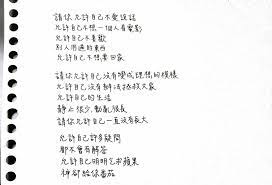 請你允許自己不愛說話
允許自己不想一個人看電影
允許自己不喜歡
別人用過的東西
允許自己不想要回家
請你允許自己沒有變成理想的模樣
允許自己沒有辦法拯救大家
允許自己的生活
靜止很少，動亂很長
請你允許自己一直沒有長大
允許自己許多疑問
都不會有解答
允許自己明明乞求蘋果
神卻給你番茄